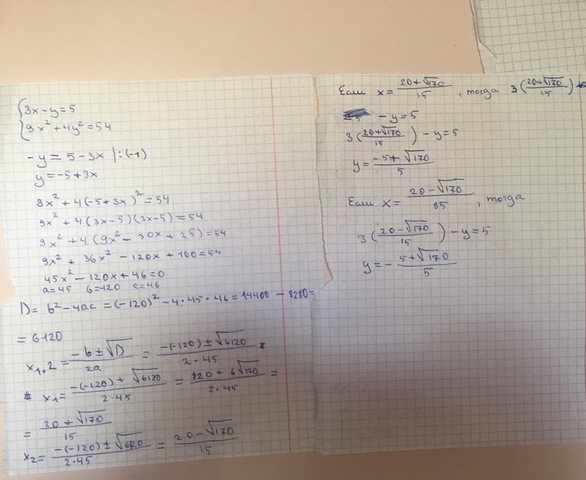 {3x-y=5
{9x²+4y²=54
-y = 5-3x |:(-1)
y=-5+3x
9x²+4(-5+3x)²=54
9x²+4(3x-5)(3x-5)=54
9x²+4(9x²-30x+25)=54
9x²+36x²-120x+100=54
45x²-120x+46=0
a=45 b=120 c=46
D=b²-4ac=(-120)²-4·45·46=14400-8280=
=6120
x₁,₂=(-b±√D)/2a=(-(-120)±√6120)/(2·45)
x₁=(-(-120)+√6120)/(2·45)=(120+6√170)/(2·45)=
=(20+√170)/15
x₂=(-(-120)±√6120)/(2·45)=(20-√170)/15
Если x=(20+√170)/15, тогда 3((20+√170)/15)
-y=5
3((20+√170)/15)-y=5
y=(-5+√170)/5
Если x=(20-√170)/15, тогда
3((20-√170)/15)-y=5
y=-(5+√170)/5